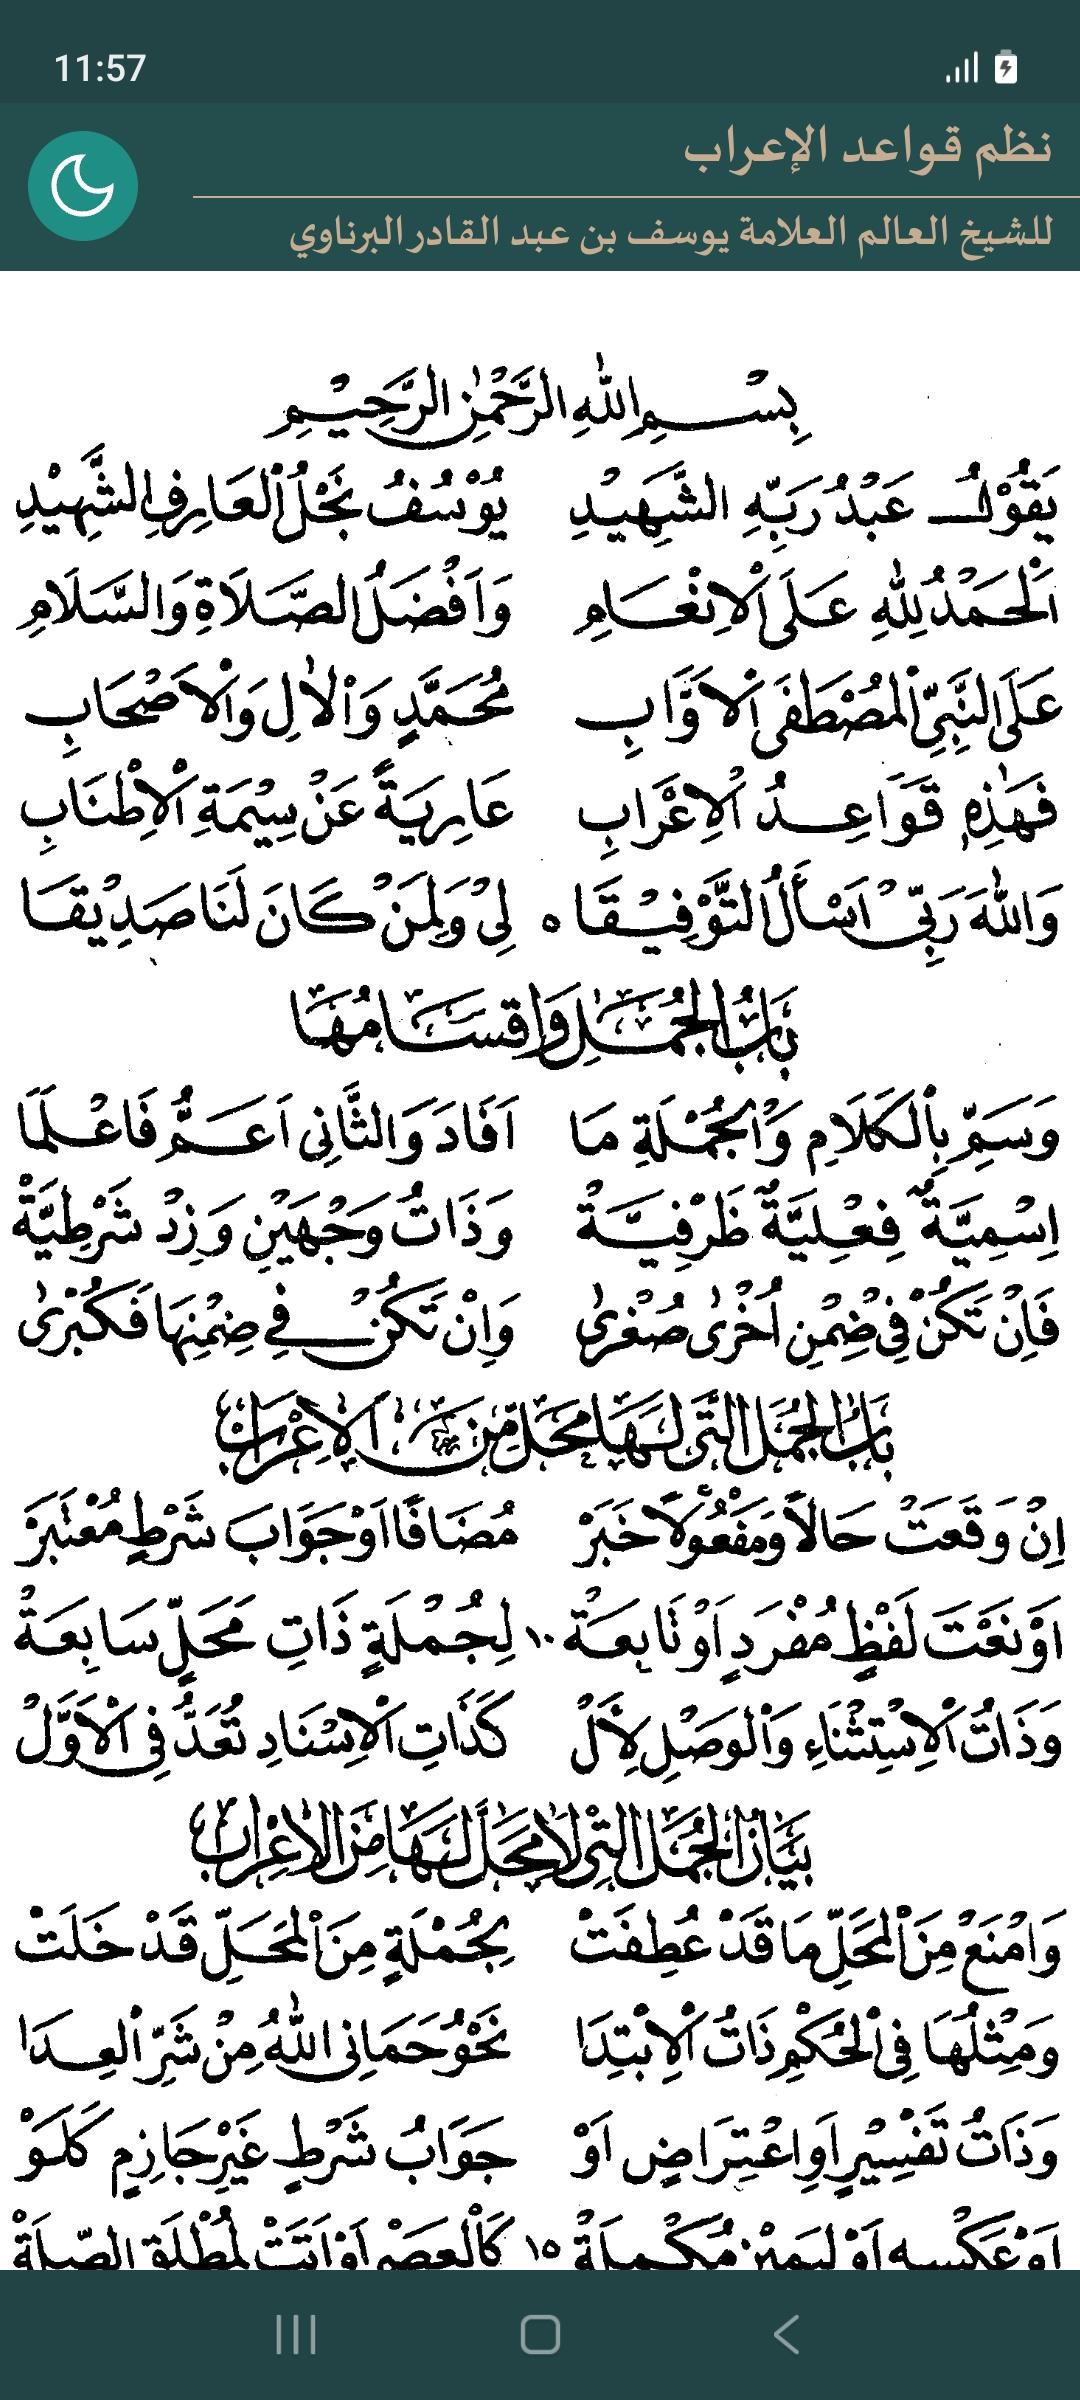 11:57
نظم قواعد الإعراب
للشيخ العالم العلامة يوسف بن عبد القادر البرناوي
بِسْمِ اللّٰهِ الرَّحْمٰنِ الرَّحِيْمِ
يَقُوْلُ عَبْدُ رَبِّهِ الشَّهِيْدِ يُوْسُفُ نَجْلُ الْعَارِفِ الشَّهِيْدِ
اَلْحَمْدُ لِلّٰهِ عَلَى الْاِنْعَامِ وَاَفْضَلُ الصَّلَاةِ وَالسَّلَامِ
عَلَى النَّبِيِّ الْمُصْطَفَى الْاَوَّابِ مُحَمَّدٍ وَالْاٰلِ وَالْاَصْحَابِ
فَهٰذِهِ قَوَاعِدُ الْاِعْرَابِ عَارِيَةً عَنْ سِيْمَةِ الْاِطْنَابِ
وَاللّٰهَ رَبِّيْ اَسْأَلُ التَّوْفِيْقَا ٥ لِيْ وَلِمَنْ كَانَ لَنَا صَدِيْقَا
بَابُ الْجُمَلِ وَاَقْسَامُهَا
وَسَمِّ بِالْكَلَامِ وَالْجُمْلَةِ مَا اَفَادَ وَالثَّانِى اَعَمُّ فَاعْلَمَا
اِسْمِيَّةٌ فِعْلِيَّةٌ ظَرْفِيَّةْ وَذَاتُ وَجْهَيْنِ وَزِدْ شَرْطِيَّةْ
فَاِنْ تَكُنْ فِىْ ضِمْنِ اُخْرٰى صُغْرٰى وَاِنْ تَكُنْ فِي ضِمْنِهَا فَكُبْرٰى
بَابُ الْجُمَلِ الَّتِى لَهَا مَحَلٌّ مِنَ الْاِعْرَابِ
اِنْ وَقَعَتْ حَالًا وَمَفْعُوْلًا خَبَرْ مُضَافًا اَوْ جَوَابَ شَرْطٍ مُعْتَبَرْ
اَوْ نَعْتَ لَفْظٍ مُفْرَدٍ اَوْ تَابِعَةْ ١٠ لِجُمْلَةٍ ذَاتِ مَحَلٍّ سَابِعَةْ
وَذَاتُ الْاِسْتِثْنَاءِ وَالْوَصْلِ لِاَلْ كَذَاتِ الْاِسْنَادِ تُعَدُّ فِى الْاَوَّلْ
بَيَانُ الْجُمَلِ الَّتِى لَا مَحَلَّ لَهَا مِنَ الْاِعْرَابِ
وَامْنَعْ مِنَ الْمَحَلِّ مَا قَدْ عُطِفَتْ بِجُمْلَةٍ مِنَ الْمَحَلِّ قَدْ خَلَتْ
وَمِثْلُهَا فِى الْحُكْمِ ذَاتُ الْاِبْتِدَا نَحْوُ حَمَانِى اللّٰهُ مِنْ شَرِّ الْعِدَا
وَذَاتُ تَفْسِيْرٍ اَوِ اعْتِرَاضٍ اَوْ جَوَابُ شَرْطٍ غَيْرِ جَازِمٍ كَلَوْ
اَوْ عَكْسِهِ اَوْ لِيَمِيْنٍ مُكْمِلَةْ ١٥ كَالْعَصْرِ اَوْ اَتَتْ لِمُطْلَقِ الصِّلَةْ